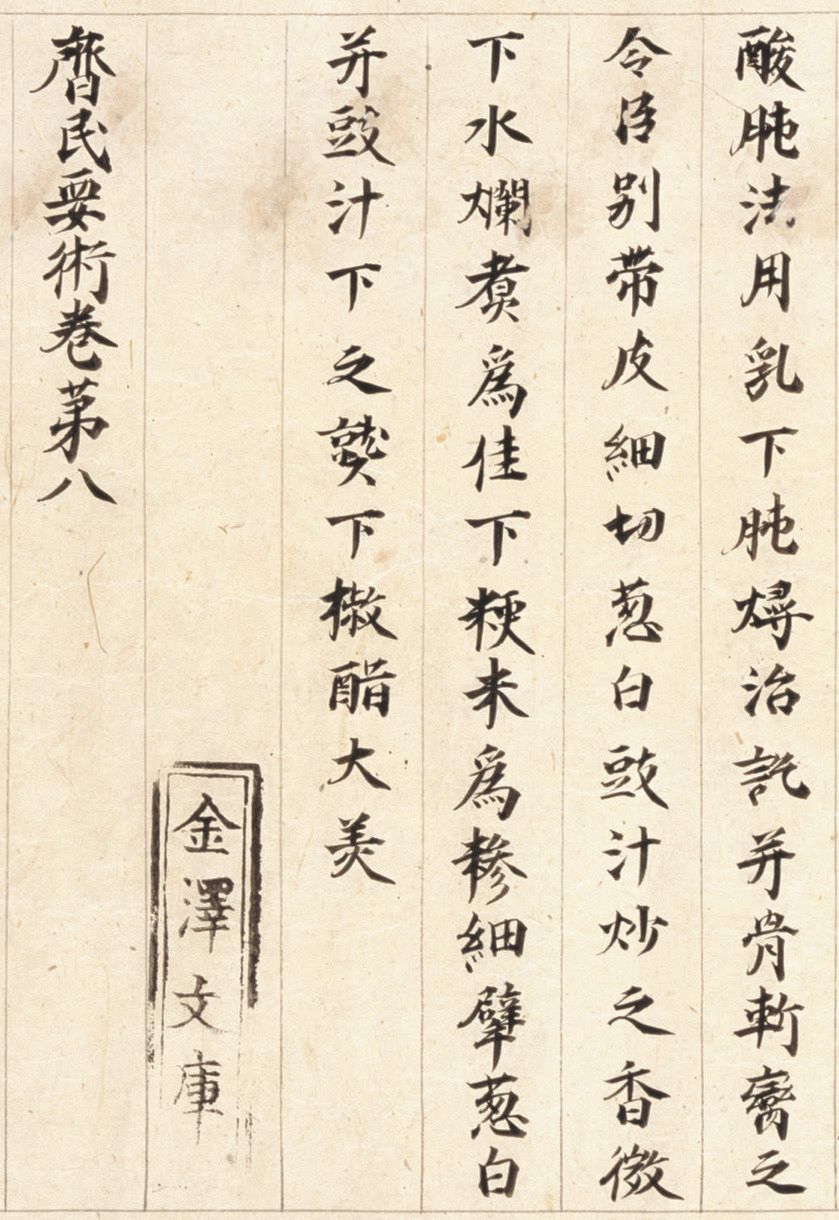 酸肫法用乳下肫燖治訖并骨斬臠之
令片別帶皮細切葱白豉汁炒之香微
下水爛煮爲佳下粳米爲糝細擘葱白
并豉汁下之熟下椒醋大美
金澤文庫
齊民要術卷第八